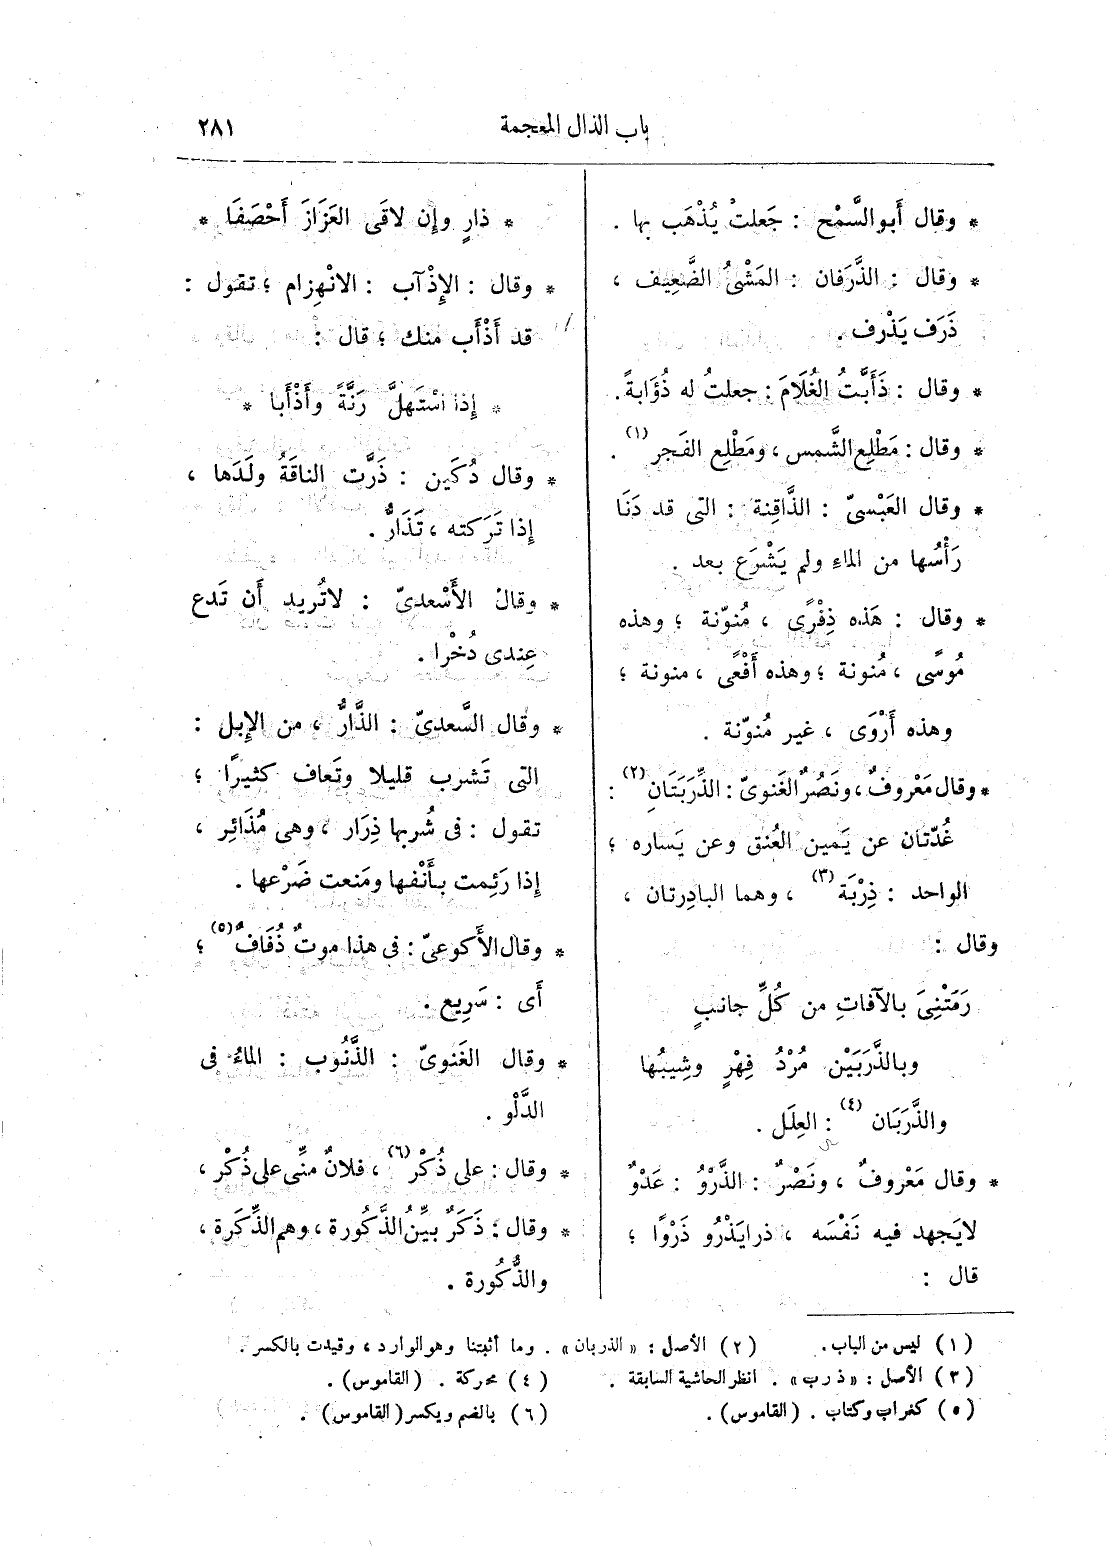 باب الذال المعجمة
٢٨١
* وقال أَبو السَّمْح : جَعلتْ يُذْهَب بها .
* وقال : الذَّرَفان : المَشْىُ الضَّعِيف ،
ذَرَف يَذْرِف .
* وقال : ذَأَبَّتُ الغُلَامَ : جعلتُ له ذُؤَابةً .
* وقال : مَطْلِع الشَّمس ، ومَطْلِع الفَجر (١) .
* وقال العَبْسىّ : الذَّاقِنة : التى قد دَنَا
رَأْسُها من الماء ولم يَشْرَع بعد .
* وقال : هَذه ذِفْرًى ، مُنوّنة ؛ وهذه
مُوسًى ، مُنونة ؛ وهذه أَفْعًى ، منونة ؛
وهذه أَرْوَى ، غير مُنوّنة .
* وقال مَعْروفٌ ، ونَصْرٌ الغَنوىّ : الذِّرَبَتَانِ (٢) :
غُدّتان عن يَمين العُنق وعن يَساره ؛
الواحد : ذِرْبَة (٣) ، وهما البادِرتان ،
وقال :
رَمَتْنِىَ بالآفاتِ من كُلِّ جانبٍ
وبالذَّرَبَيْن مُرْدُ فِهْرٍ وشِيبُها
والذَّرَبَان (٤) : العِلَل .
* وقال مَعْروفٌ ، ونَصْرٌ : الذَّرْوُ : عَدْوٌ
لايَجهد فيه نَفْسَه ، ذرا يَذْرُو ذَرْوًا ؛
قال :
* ذارٍ وإِن لاقَى العَزَازَ أَحْصَفَا *
* وقال : الإِذْآب : الانْهِزام ؛ تقول :
قد أَذْأَب منك ؛ قال :
* إِذا اسْتَهلَّ رَنَّةً وأَذْأَبا *
* وقال دُكَين : ذَرَّت الناقَةُ ولَدَها ،
إِذا تَرَكته ، تَذَارُّ .
* وقال الأَسْعدىّ : لاتُريد أَن تَدع
عِندى ذُخْرا .
* وقال السَّعدىّ : الذَّارُّ ، من الإِبل :
التى تَشرب قليلا وتَعاف كثيرًا ؛
تقول : فى شُربها ذِرَار ، وهى مُذَائِر ،
إِذا رَئِمت بأَنْفها ومَنعت ضَرْعها .
* وقال الأَكوعىّ : فى هذا موتٌ ذُفَافٌ (٥) ؛
أَى : سَرِيع .
* وقال الغَنوىّ : الذَّنُوب : الماءُ فى
الدَّلْو .
* وقال : على ذُكْر (٦) ، فلانٌ منِّى على ذُكْر ،
* وقال : ذَكَرٌ بيِّنُ الذُّكُورة ، وهم الذِّكَرة ،
والذُّكُورة .
(١) ليس من الباب . (٢) الأصل : « الذربان » . وما أثبتنا وهو الوارد ، وقيدت بالكسر .
(٣) الأصل : « ذرب » . انظر الحاشية السابقة . (٤) محركة . (القاموس) .
(٥) كغراب وكتاب . (القاموس) . (٦) بالضم ويكسر (القاموس) .